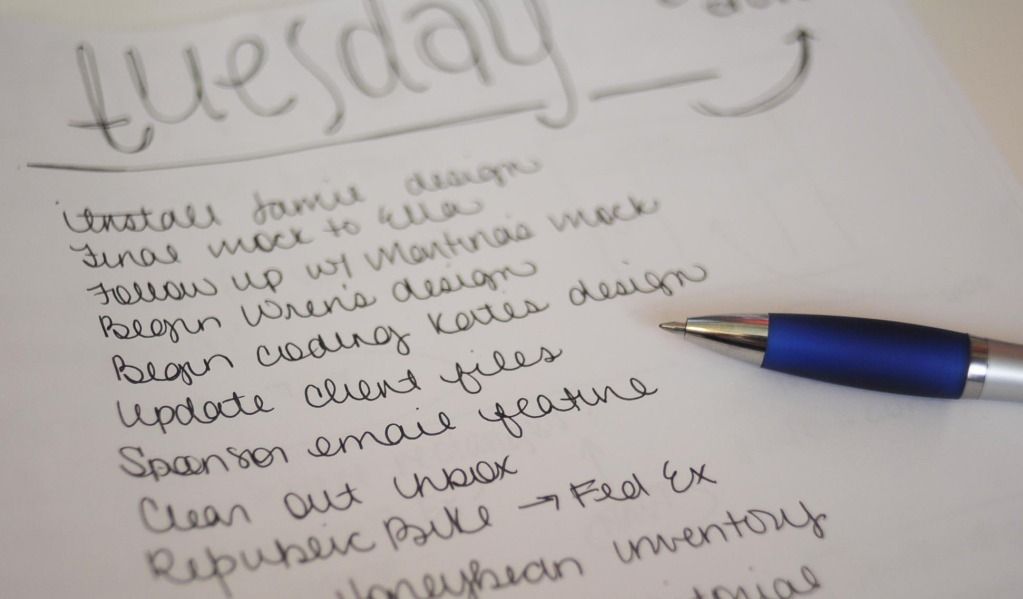 tuesday
install Jamie design
Final mock to Ella
Follow up w/ Martina's mock
Begin Wren's design
Begin coding Kate's design
Update client files
Sponsor email feature
Clean out inbox
Republic Bike → Fed Ex
Honeybean inventory